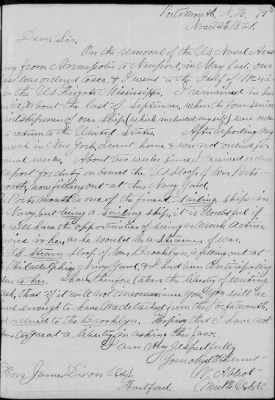 Portsmouth, N.H.
Nov 22 1861.
Dear Sir,
On the removal of the U.S. Naval Academy
from Annapolis to Newport, in May last, our
class was ordered to sea, & I went to the Gulf of Mexico
in the U.S. Frigate Mississippi. I remained in her
until about the last of September, when the four senior
Midshipmen of our ship (which included myself) were ordered
to return to the United States. After reporting my
in New York, I went home & was not ordered for
several weeks. About two weeks since I received orders
to report for duty on board the U.S. Sloop of War Ports-
mouth, now fitting out at this Navy Yard.
Portsmouth is one of the finest sailing ships in
Navy, but being a sailing ship, it is doubtful if
will have the opportunities of seeing as much active
service in her, as he would in a steamer of war.
U.S. Steam Sloop of War Brooklyn, is fitting out at
Philadelphia Navy Yard, & I had been anticipating
to her. I have therefore taken the liberty of writing
that, if it will not inconvenience you, you will be
kind enough to have me detached from the Portsmouth,
& ordered to the Brooklyn. Hoping that I have not
taken too great a liberty in asking this favor
I am Very Respectfully
Your obdt Servant
Hon James Dixon
Hartford